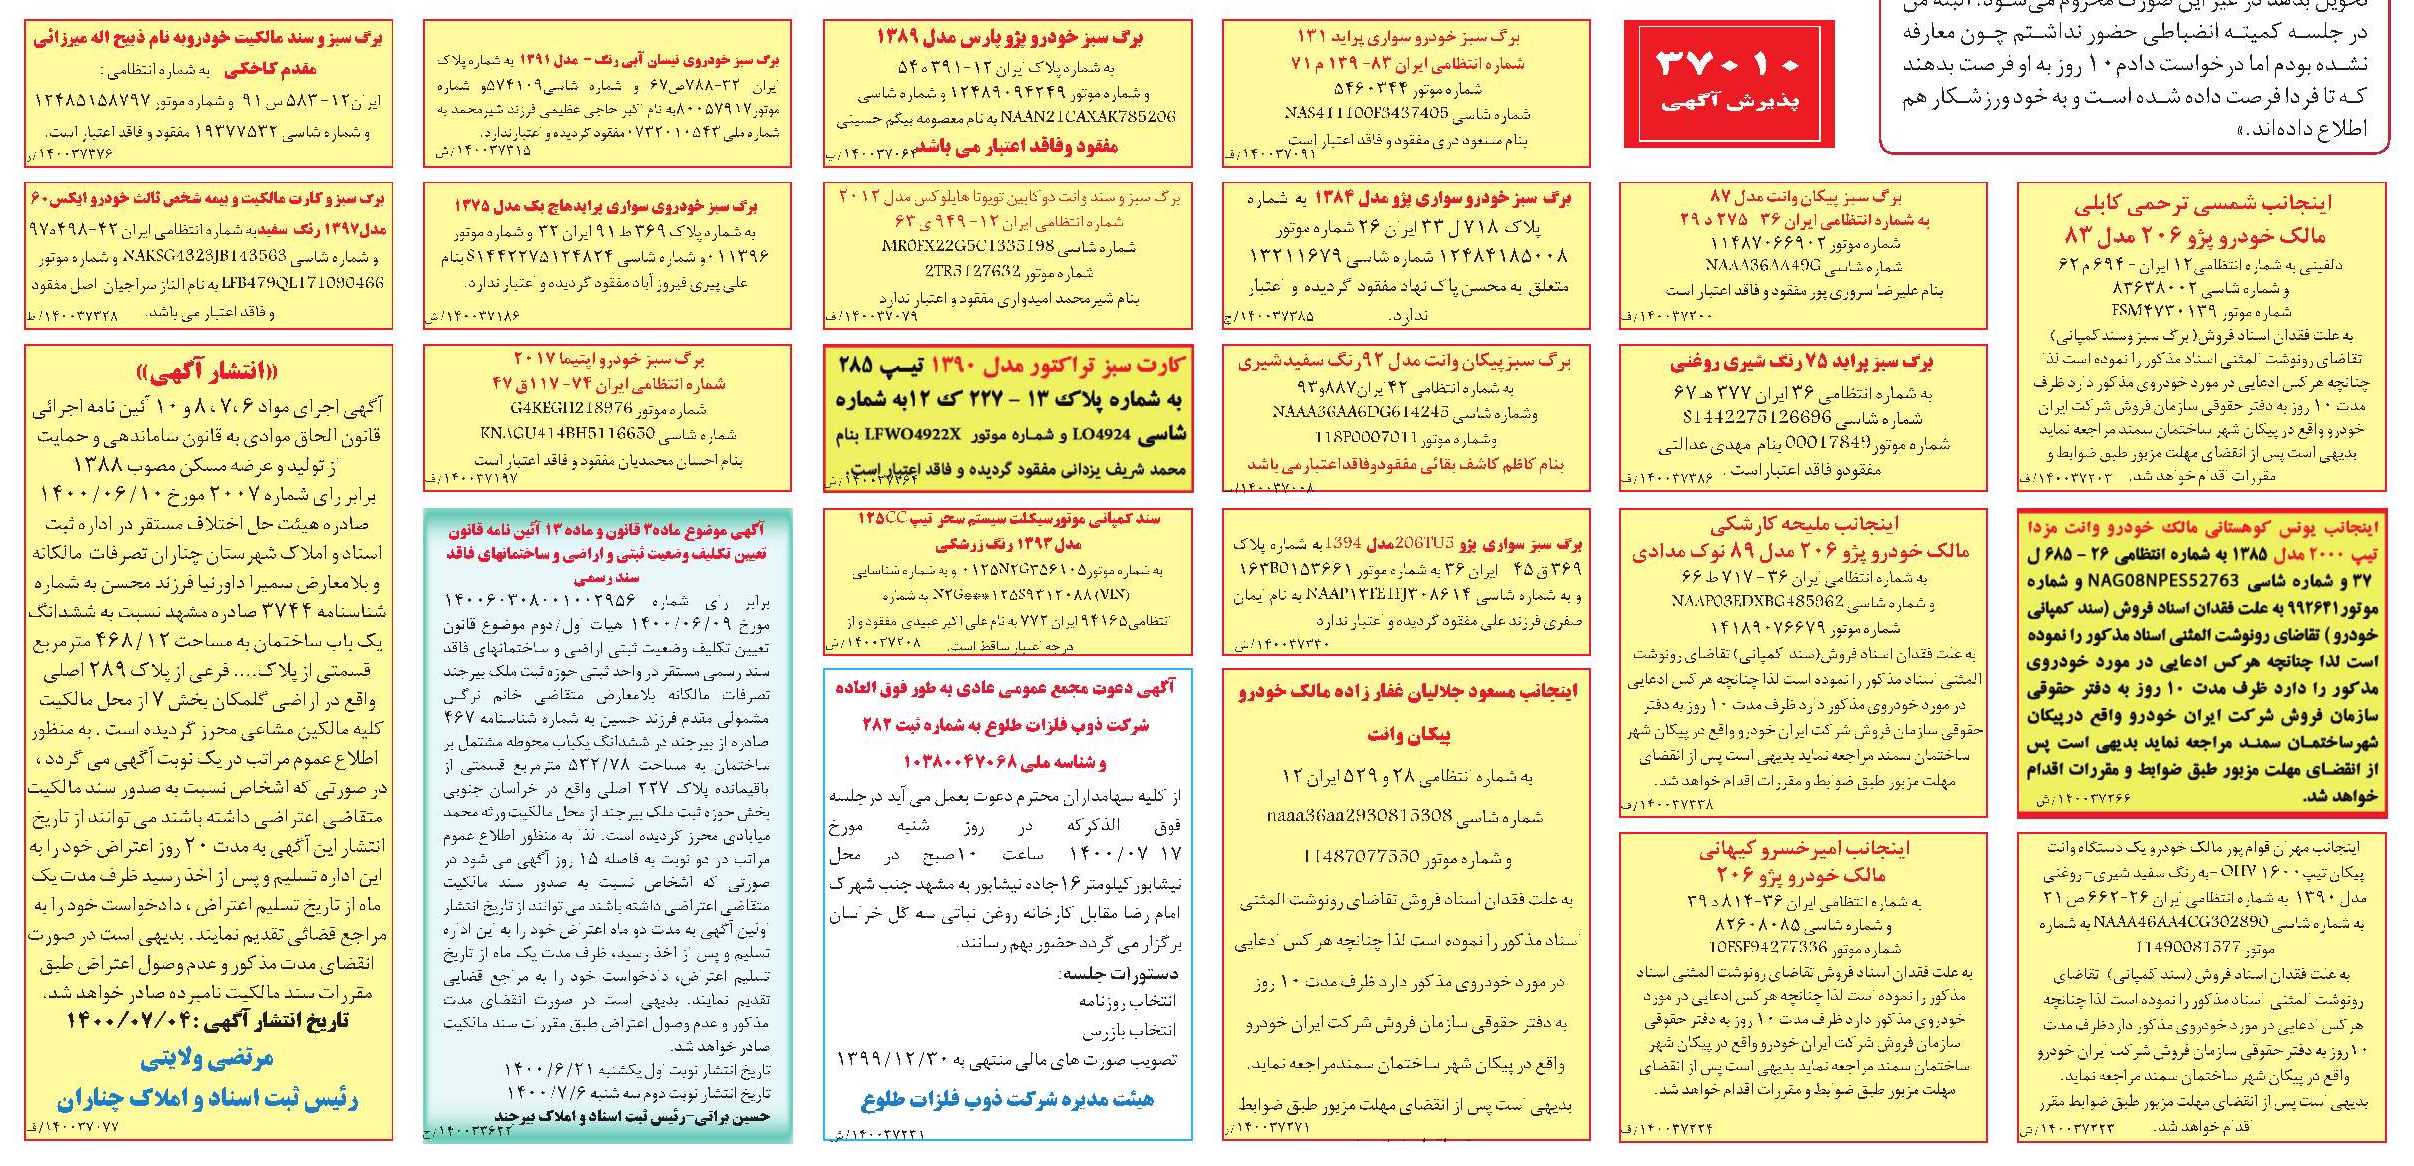 تحویل بدهد در غیر این صورت محروم می‌شود. البته من
در جلسه کمیته انضباطی حضور نداشتم چون معارفه
نشده بودم اما درخواست دادم ۱۰ روز به او فرصت بدهند
که تا فردا فرصت داده شده است و به خود ورزشکار هم
اطلاع داده‌اند.»
۳۷۰۱۰
پذیرش آگهی
برگ سبز خودرو سواری پراید ۱۳۱
شماره انتظامی ایران ۸۳- ۱۳۹ م ۷۱
شماره موتور ۵۴۶۰۳۴۴
شماره شاسی NAS411100F3437405
بنام مسعود دری مفقود و فاقد اعتبار است
۱۴۰۰۳۷۰۹۱/ف
برگ سبز خودرو پژو پارس مدل ۱۳۸۹
به شماره پلاک ایران ۱۲-۳۹۱ ه ۵۴
و شماره موتور ۱۲۴۸۹۰۹۴۲۴۹ و شماره شاسی
NAAN21CAXAK785206 به نام معصومه بیگم حسینی
مفقود وفاقد اعتبار می باشد
۱۴۰۰۳۷۰۶۴/پ
برگ سبز خودروی نیسان آبی رنگ - مدل ۱۳۹۱ به شماره پلاک
ایران ۳۲-۷۸۸ص۶۷ و شماره شاسی۵۷۴۱۰۹و شماره
موتور۸۰۰۵۷۹۱۷به نام اکبر حاجی عظیمی فرزند شیرمحمد به
شماره ملی ۰۷۳۲۰۱۰۵۴۳مفقود گردیده و اعتبارندارد.
۱۴۰۰۳۷۳۱۵/ش
برگ سبز و سند مالکیت خودروبه نام ذبیح اله میرزائی
مقدم کاخکی به شماره انتظامی :
ایران۱۲-۵۸۳ س ۹۱ و شماره موتور ۱۲۴۸۵۱۵۸۷۹۷
و شماره شاسی ۱۹۳۷۷۵۳۲ مفقود و فاقد اعتبار است.
۱۴۰۰۳۷۳۷۶/ر
اینجانب شمسی ترحمی کابلی
مالک خودرو پژو ۲۰۶ مدل ۸۳
دلفینی به شماره انتظامی۱۲ ایران - ۶۹۴ م ۶۲
و شماره شاسی ۸۳۶۳۸۰۰۲
شماره موتور FSM۴۷۳۰۱۳۹
به علت فقدان اسناد فروش( برگ سبز وسند کمپانی)
تقاضای رونوشت المثنی اسناد مذکور را نموده است لذا
چنانچه هرکس ادعایی در مورد خودروی مذکور دارد ظرف
مدت ۱۰ روز به دفتر حقوقی سازمان فروش شرکت ایران
خودرو واقع در پیکان شهر ساختمان سمند مراجعه نماید
بدیهی است پس از انقضای مهلت مزبور طبق ضوابط و
مقررات اقدام خواهد شد.
۱۴۰۰۳۷۲۰۳/ف
برگ سبز پیکان وانت مدل ۸۷
به شماره انتظامی ایران ۳۶ ۲۷۵ د ۲۹
شماره موتور ۱۱۴۸۷۰۶۶۹۰۲
شماره شاسی NAAA36AA49G
بنام علیرضا سروری پور مفقود و فاقد اعتبار است
۱۴۰۰۳۷۲۰۰/ف
برگ سبز خودرو سواری پژو مدل ۱۳۸۴ به شماره
پلاک ۷۱۸ ل ۳۳ ایران ۲۶ شماره موتور
۱۲۴۸۴۱۸۵۰۰۸ شماره شاسی ۱۳۲۱۱۶۷۹
متعلق به محسن پاک نهاد مفقود گردیده و اعتبار
ندارد.
۱۴۰۰۳۷۳۸۵/چ
برگ سبز و سند وانت دو کابین تویوتا هایلوکس مدل ۲۰۱۲
شماره انتظامی ایران ۱۲- ۹۴۹ ی ۶۳
شماره شاسی MR0FX22G5C1335198
شماره موتور 2TR5127632
بنام شیرمحمد امیدواری مفقود و اعتبار ندارد
۱۴۰۰۳۷۰۷۹/ف
برگ سبز خودروی سواری پرایدهاچ بک مدل ۱۳۷۵
به شماره پلاک ۳۶۹ ط ۹۱ ایران ۳۲ و شماره موتور
۰۱۱۳۹۶و شماره شاسی S۱۴۴۲۲۷۵۱۲۴۸۲۴ بنام
علی پیری فیروز آباد مفقود گردیده و اعتبار ندارد.
۱۴۰۰۳۷۱۸۶/ش
برگ سبز و کارت مالکیت و بیمه شخص ثالث خودرو ایکس۶۰
مدل۱۳۹۷ رنگ سفیدبه شماره انتظامی ایران ۴۲-۴۹۸ه۹۷
و شماره شاسی NAKSG4323JB143563 و شماره موتور
LFB479QL171090466 به نام الناز سراجیان اصل مفقود
و فاقد اعتبار می باشد.
۱۴۰۰۳۷۳۲۸/ط
برگ سبز پراید ۷۵ رنگ شیری روغنی
به شماره انتظامی ۳۶ ایران ۳۷۷ هـ ۶۷
شماره شاسی S1442275126696
شماره موتور00017849 بنام مهدی عدالتی
مفقودو فاقد اعتبار است .
۱۴۰۰۳۷۳۸۶/ف
برگ سبزپیکان وانت مدل ۹۲رنگ سفیدشیری
به شماره انتظامی ۴۲ ایران۸۸۷و۹۳
وشماره شاسی NAAA36AA6DG614245
وشماره موتور118P0007011
بنام کاظم کاشف بقائی مفقودوفاقداعتبارمی باشد
۱۴۰۰۳۷۰۰۸/ب
کارت سبز تراکتور مدل ۱۳۹۰ تیپ ۲۸۵
به شماره پلاک ۱۳ - ۲۲۷ ک ۱۲به شماره
شاسی LO4924 و شماره موتور LFWO4922X بنام
محمد شریف یزدانی مفقود گردیده و فاقد اعتبار است.
۱۴۰۰۳۷۳۶۴/ش
برگ سبز خودرو اپتیما ۲۰۱۷
شماره انتظامی ایران ۷۴- ۱۱۷ق ۴۷
شماره موتور G4KEGH218976
شماره شاسی KNAGU414BH5116650
بنام احسان محمدیان مفقود و فاقد اعتبار است
۱۴۰۰۳۷۱۹۷/ف
((انتشار آگهی))
آگهی اجرای مواد ۶، ۷، ۸ و ۱۰ آئین نامه اجرائی
قانون الحاق موادی به قانون ساماندهی و حمایت
از تولید و عرضه مسکن مصوب ۱۳۸۸
برابر رای شماره ۲۰۰۷ مورخ ۱۴۰۰/۰۶/۱۰
صادره هیئت حل اختلاف مستقر در اداره ثبت
اسناد و املاک شهرستان چناران تصرفات مالکانه
و بلامعارض سمیرا داورنیا فرزند محسن به شماره
شناسنامه ۳۷۴۴ صادره مشهد نسبت به ششدانگ
یک باب ساختمان به مساحت ۴۶۸/۱۲ مترمربع
قسمتی از پلاک.... فرعی از پلاک ۲۸۹ اصلی
واقع در اراضی گلمکان بخش ۷ از محل مالکیت
کلیه مالکین مشاعی محرز گردیده است . به منظور
اطلاع عموم مراتب در یک نوبت آگهی می گردد ،
در صورتی که اشخاص نسبت به صدور سند مالکیت
متقاضی اعتراضی داشته باشند می توانند از تاریخ
انتشار این آگهی به مدت ۲۰ روز اعتراض خود را به
این اداره تسلیم و پس از اخذ رسید ظرف مدت یک
ماه از تاریخ تسلیم اعتراض ، دادخواست خود را به
مراجع قضائی تقدیم نمایند . بدیهی است در صورت
انقضای مدت مذکور و عدم وصول اعتراض طبق
مقررات سند مالکیت نامبرده صادر خواهد شد.
تاریخ انتشار آگهی :۱۴۰۰/۰۷/۰۴
مرتضی ولایتی
رئیس ثبت اسناد و املاک چناران
۱۴۰۰۳۷۰۷۷/ف
اینجانب یونس کوهستانی مالک خودرو وانت مزدا
تیپ ۲۰۰۰ مدل ۱۳۸۵ به شماره انتظامی ۲۶ - ۶۸۵ ل
۳۷ و شماره شاسی NAG08NPES52763 و شماره
موتور۹۹۲۶۳۱ به علت فقدان اسناد فروش (سند کمپانی
خودرو ) تقاضای رونوشت المثنی اسناد مذکور را نموده
است لذا چنانچه هرکس ادعایی در مورد خودروی
مذکور را دارد ظرف مدت ۱۰ روز به دفتر حقوقی
سازمان فروش شرکت ایران خودرو واقع درپیکان
شهرساختمان سمند مراجعه نماید بدیهی است پس
از انقضای مهلت مزبور طبق ضوابط و مقررات اقدام
خواهد شد.
۱۴۰۰۳۷۲۶۶/ش
اینجانب ملیحه کارشکی
مالک خودرو پژو ۲۰۶ مدل ۸۹ نوک مدادی
به شماره انتظامی ایران ۳۶- ۷۱۷ ط ۶۶
و شماره شاسی NAAP03EDXBG485962
شماره موتور ۱۴۱۸۹۰۷۶۶۷۹
به علت فقدان اسناد فروش(سند کمپانی) تقاضای رونوشت
المثنی اسناد مذکور را نموده است لذا چنانچه هرکس ادعایی
در مورد خودروی مذکور دارد ظرف مدت ۱۰ روز به دفتر
حقوقی سازمان فروش شرکت ایران خودرو واقع در پیکان شهر
ساختمان سمند مراجعه نماید بدیهی است پس از انقضای
مهلت مزبور طبق ضوابط و مقررات اقدام خواهد شد.
۱۴۰۰۳۷۲۳۸/ف
برگ سبز سواری پژو 206TU5مدل 1394به شماره پلاک
۳۶۹ ق ۴۵ ایران ۳۶ به شماره موتور ۱۶۳B0۱۵۳۶۶۱
و به شماره شاسی NAAP۱۳FE۱FJ۳۰۸۶۱۴ به نام ایمان
صفری فرزند علی مفقود گردیده و اعتبار ندارد
۱۴۰۰۳۷۳۴۰/ش
سند کمپانی موتورسیکلت سیستم سحر تیپ ۱۲۵CC
مدل۱۳۹۳ رنگ زرشکی
به شماره موتور۰۱۲۵N۲G۳۵۶۱۰۵ و به شماره شناسایی
(VIN) N۲G***۱۲۵S۹۳۱۲۰۸۸ به شماره
انتظامی۹۴۱۶۵ ایران ۷۷۲ به نام علی اکبر عبیدی مفقود و از
درجه اعتبار ساقط است.
۱۴۰۰۳۷۲۰۸/ش
آگهی موضوع ماده۳ قانون و ماده ۱۳ آئین نامه قانون
تعیین تکلیف وضعیت ثبتی و اراضی و ساختمانهای فاقد
سند رسمی
برابر رای شماره ۱۴۰۰۶۰۳۰۸۰۰۱۰۰۲۹۵۶
مورخ ۱۴۰۰/۰۶/۰۹ هیات اول/دوم موضوع قانون
تعیین تکلیف وضعیت ثبتی اراضی و ساختمانهای فاقد
سند رسمی مستقر در واحد ثبتی حوزه ثبت ملک بیرجند
تصرفات مالکانه بلامعارض متقاضی خانم نرگس
مشمولی مقدم فرزند حسین به شماره شناسنامه ۴۶۷
صادره از بیرجند در ششدانگ یکباب محوطه مشتمل بر
ساختمان به مساحت ۵۳۲/۷۸ مترمربع قسمتی از
باقیمانده پلاک ۲۲۷ اصلی واقع در خراسان جنوبی
بخش حوزه ثبت ملک بیرجند از محل مالکیت ورثه محمد
میابادی محرز گردیده است. لذا به منظور اطلاع عموم
مراتب در دو نوبت به فاصله ۱۵ روز آگهی می شود در
صورتی که اشخاص نسبت به صدور سند مالکیت
متقاضی اعتراضی داشته باشند می توانند از تاریخ انتشار
اولین آگهی به مدت دو ماه اعتراض خود را به این اداره
تسلیم و پس از اخذ رسید، ظرف مدت یک ماه از تاریخ
تسلیم اعتراض، دادخواست خود را به مراجع قضایی
تقدیم نمایند. بدیهی است در صورت انقضای مدت
مذکور و عدم وصول اعتراض طبق مقررات سند مالکیت
صادر خواهد شد.
تاریخ انتشار نوبت اول یکشنبه ۱۴۰۰/۶/۲۱
تاریخ انتشار نوبت دوم سه شنبه ۱۴۰۰/۷/۶
حسین براتی-رئیس ثبت اسناد و املاک بیرجند
۱۴۰۰۳۳۶۲۲/ح
اینجانب مسعود جلالیان غفار زاده مالک خودرو
پیکان وانت
به شماره انتظامی ۲۸ و ۵۲۹ ایران ۱۲
شماره شاسی naaa36aa2930815308
و شماره موتور 11487077550
به علت فقدان اسناد فروش تقاضای رونوشت المثنی
اسناد مذکور را نموده است لذا چنانچه هرکس ادعایی
در مورد خودروی مذکور دارد ظرف مدت ۱۰ روز
به دفتر حقوقی سازمان فروش شرکت ایران خودرو
واقع در پیکان شهر ساختمان سمندمراجعه نماید.
بدیهی است پس از انقضای مهلت مزبور طبق ضوابط
۱۴۰۰۳۷۲۷۱/ر
آگهی دعوت مجمع عمومی عادی به طور فوق العاده
شرکت ذوب فلزات طلوع به شماره ثبت ۲۸۲
و شناسه ملی ۱۰۳۸۰۰۴۷۰۶۸
از کلیه سهامداران محترم دعوت بعمل می آید در جلسه
فوق الذکرکه در روز شنبه مورخ
۱۷ ۱۴۰۰/۰۷ ساعت ۱۰صبح در محل
نیشابورکیلومتر ۱۶جاده نیشابور به مشهد جنب شهرک
امام رضا مقابل کارخانه روغن نباتی سه گل خراسان
برگزار می گردد حضور بهم رسانند.
دستورات جلسه:
انتخاب روزنامه
انتخاب بازرس
تصویب صورت های مالی منتهی به ۱۳۹۹/۱۲/۳۰
هیئت مدیره شرکت ذوب فلزات طلوع
۱۴۰۰۳۷۲۳۱/ش
اینجانب مهران قوام پور مالک خودرو یک دستگاه وانت
پیکان تیپ۱۶۰۰ OHV -به رنگ سفید شیری-روغنی
مدل ۱۳۹۰ به شماره انتظامی ایران ۲۶-۶۶۲ ص ۲۱
به شماره شاسی NAAA46AA4CG302890 به شماره
موتور 11490081577
به علت فقدان اسناد فروش (سند کمپانی) تقاضای
رونوشت المثنی اسناد مذکور را نموده است لذا چنانچه
هرکس ادعایی در مورد خودروی مذکور داردظرف مدت
۱۰روز به دفتر حقوقی سازمان فروش شرکت ایران خودرو
واقع در پیکان شهر ساختمان سمند مراجعه نماید.
بدیهی است پس از انقضای مهلت مزبور طبق ضوابط مقرر
اقدام خواهد شد.
۱۴۰۰۳۷۲۲۳/ش
اینجانب امیرخسرو کیهانی
مالک خودرو پژو ۲۰۶
به شماره انتظامی ایران ۳۶-۸۱۴ د ۳۹
و شماره شاسی ۸۲۶۰۸۰۸۵
شماره موتور 10FSF94277336
به علت فقدان اسناد فروش تقاضای رونوشت المثنی اسناد
مذکور را نموده است لذا چنانچه هرکس ادعایی در مورد
خودروی مذکور دارد ظرف مدت ۱۰ روز به دفتر حقوقی
سازمان فروش شرکت ایران خودرو واقع در پیکان شهر
ساختمان سمند مراجعه نماید بدیهی است پس از انقضای
مهلت مزبور طبق ضوابط و مقررات اقدام خواهد شد.
۱۴۰۰۳۷۲۳۴/ف